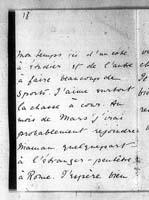 18
mon temps ici d'un côté
à étudier et de l'autre
à faire beaucoup de
sports. J'aime surtout
la chasse à cour. Au
mois de Mars j'irai
probablement rejoindre
Maman quelquepart
à l'étranger - peutêtre
à Rome. J'espère bien